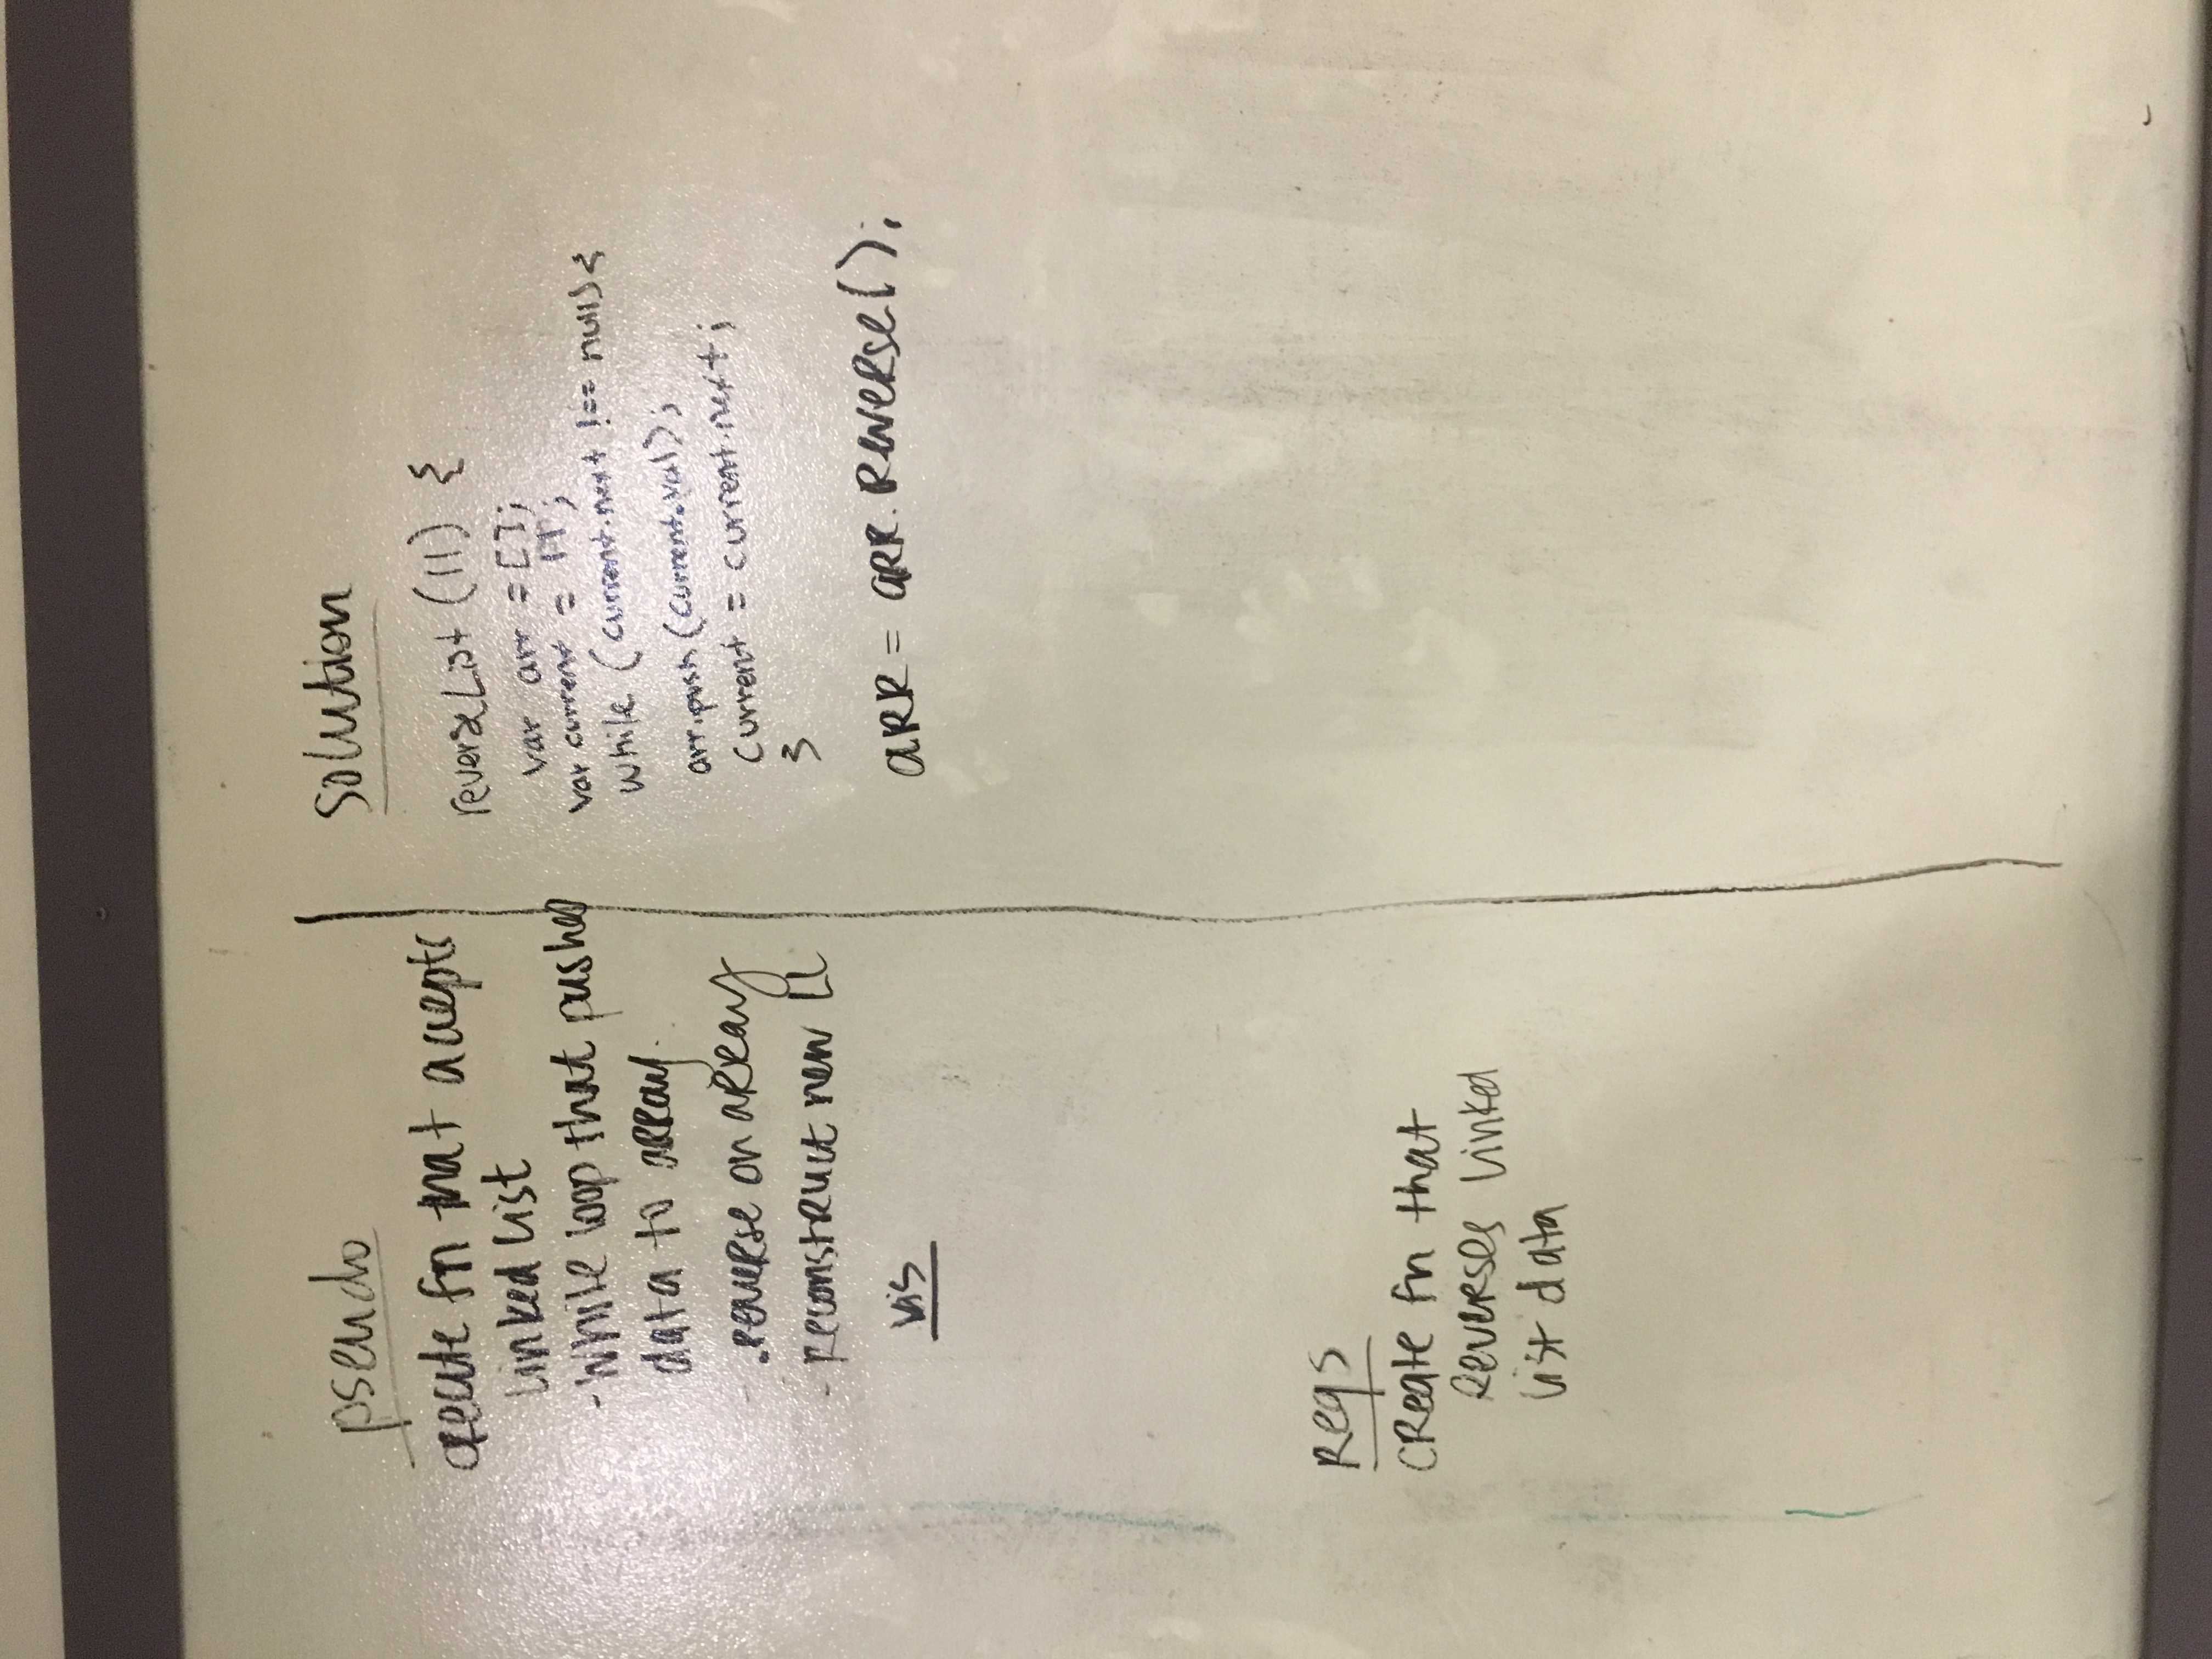 pseudo
create fn that accepts
linked list
- while loop that pushes
data to array.
- .reverse on array
- reconstruct new LL
vis
Reqs
Create fn that
Reverses linked
list data
Solution
reverseList (ll) {
var arr = [];
var current = ll;
while (current.next !== null) {
arr.push(current.val);
current = current.next;
}
arr = arr.reverse();